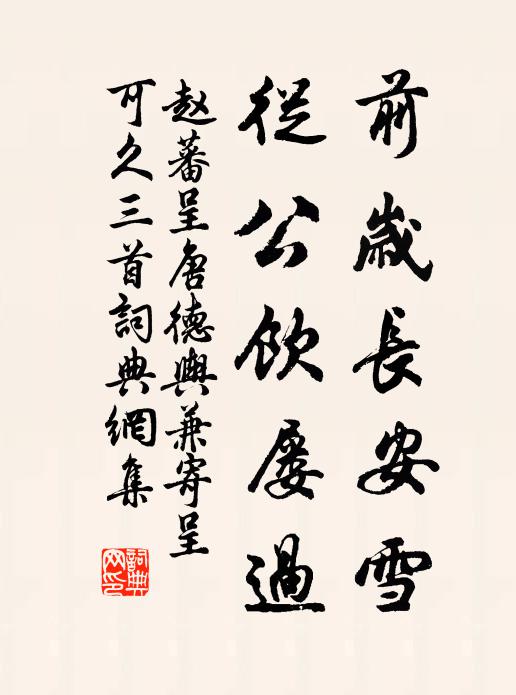 前歲長安雪
從公飲屢過
赵蕃呈唐德興兼寄呈
可久三首詞典網集
詞典網印